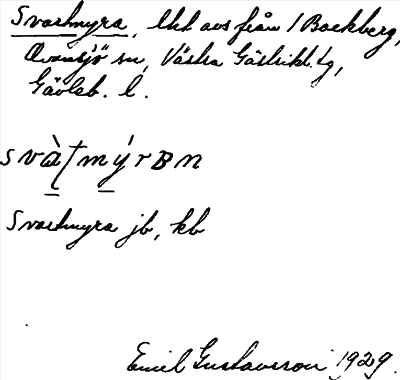 Svartmyra, lht avs från 1 Backberg,
Ovansjö sn, Västra Gästrikl. tg,
Gävleb. l.
svàtmýrBn
Svartmyra jb, kb
Emil Gustavsson 1929.